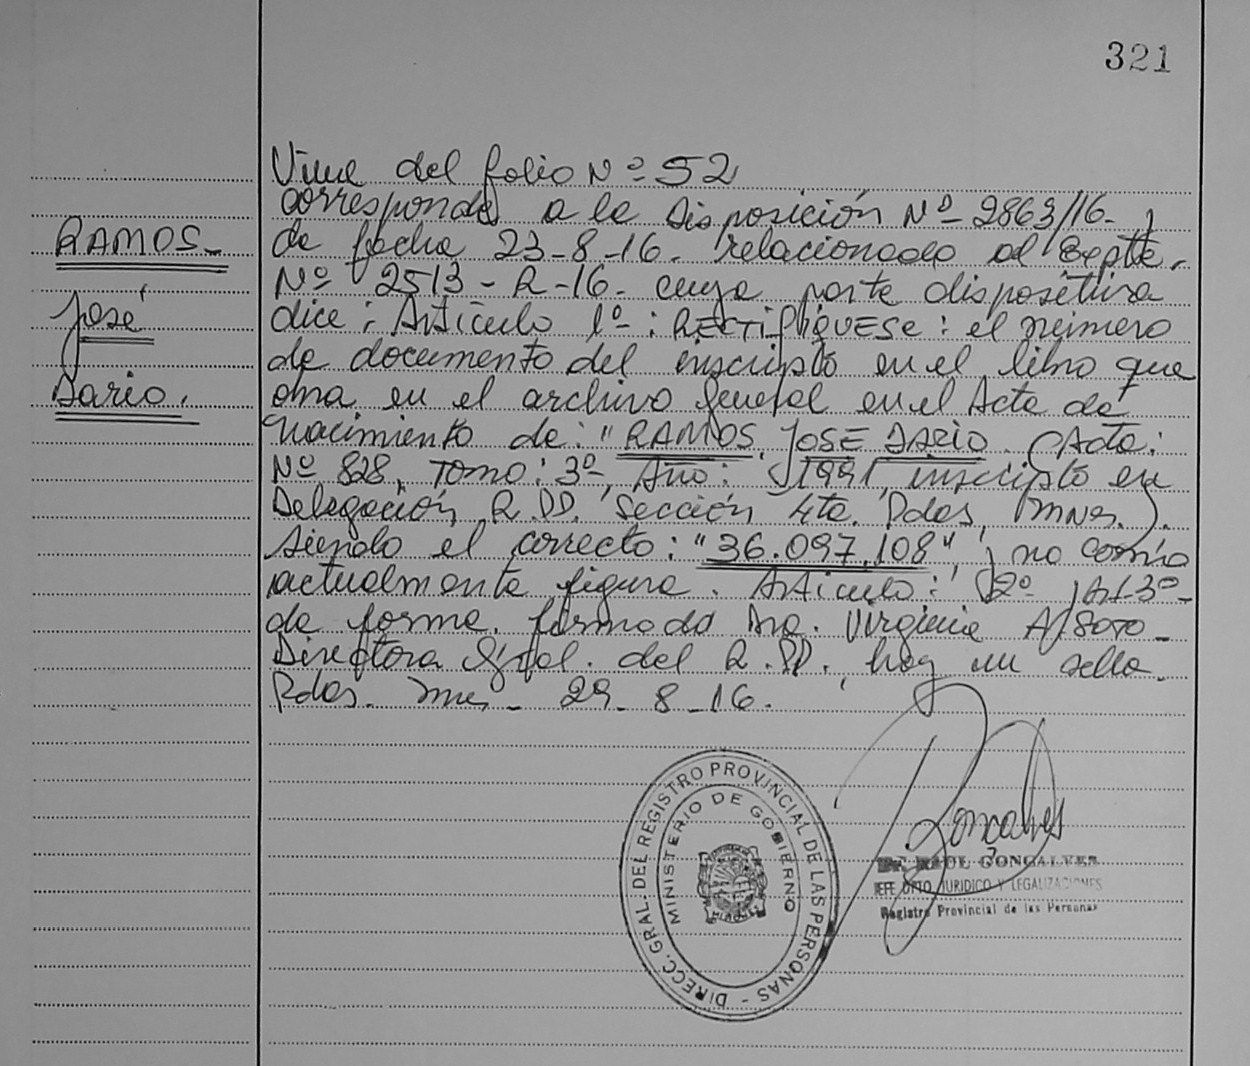 321
RAMOS-
José
Dario.
Viene del folio Nº 52
corresponde a la Disposición Nº 2863/16-
de fecha 23-8-16. relacionado al Expte.
Nº 2513-R-16- cuya parte dispositiva
dice: Articulo 1º-: RECTIFIQUESE: el número
de documento del inscripto en el libro que
obra en el archivo general en el Acta de
nacimiento de: "RAMOS JOSE DARIO (Acta:
Nº 828, Tomo: 3º, Año: 1991, inscripto en
Delegación R.PP. Sección 4ta. Pdas, Mnes.).
siendo el correcto: "36.097.108", no como
actualmente figura. Articulo: 2º, Art-3º-
de forma. firmado Dra. Virginia A/Soto-
Directora Gral. del R.PP. hay un sello.
Pdas. Mnes- 29-8-16.
DIRECC. GRAL. DEL REGISTRO PROVINCIAL DE LAS PERSONAS -
MINISTERIO DE GOBIERNO
Goncalves
RAUL GONCALVES
JEFE DPTO JURIDICO Y LEGALIZACIONES
Registro Provincial de las Personas